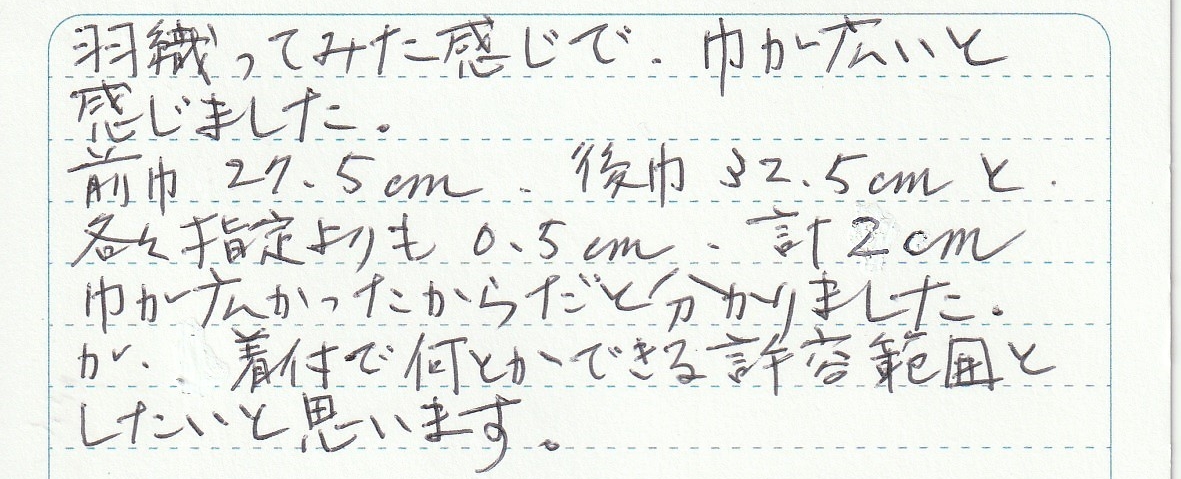 羽織ってみた感じで、巾が広いと
感じました。
前巾27.5cm、後巾32.5cmと、
各々指定よりも0.5cm、計2cm
巾が広かったからだと分かりました。
が、着付で何とかできる許容範囲と
したいと思います。